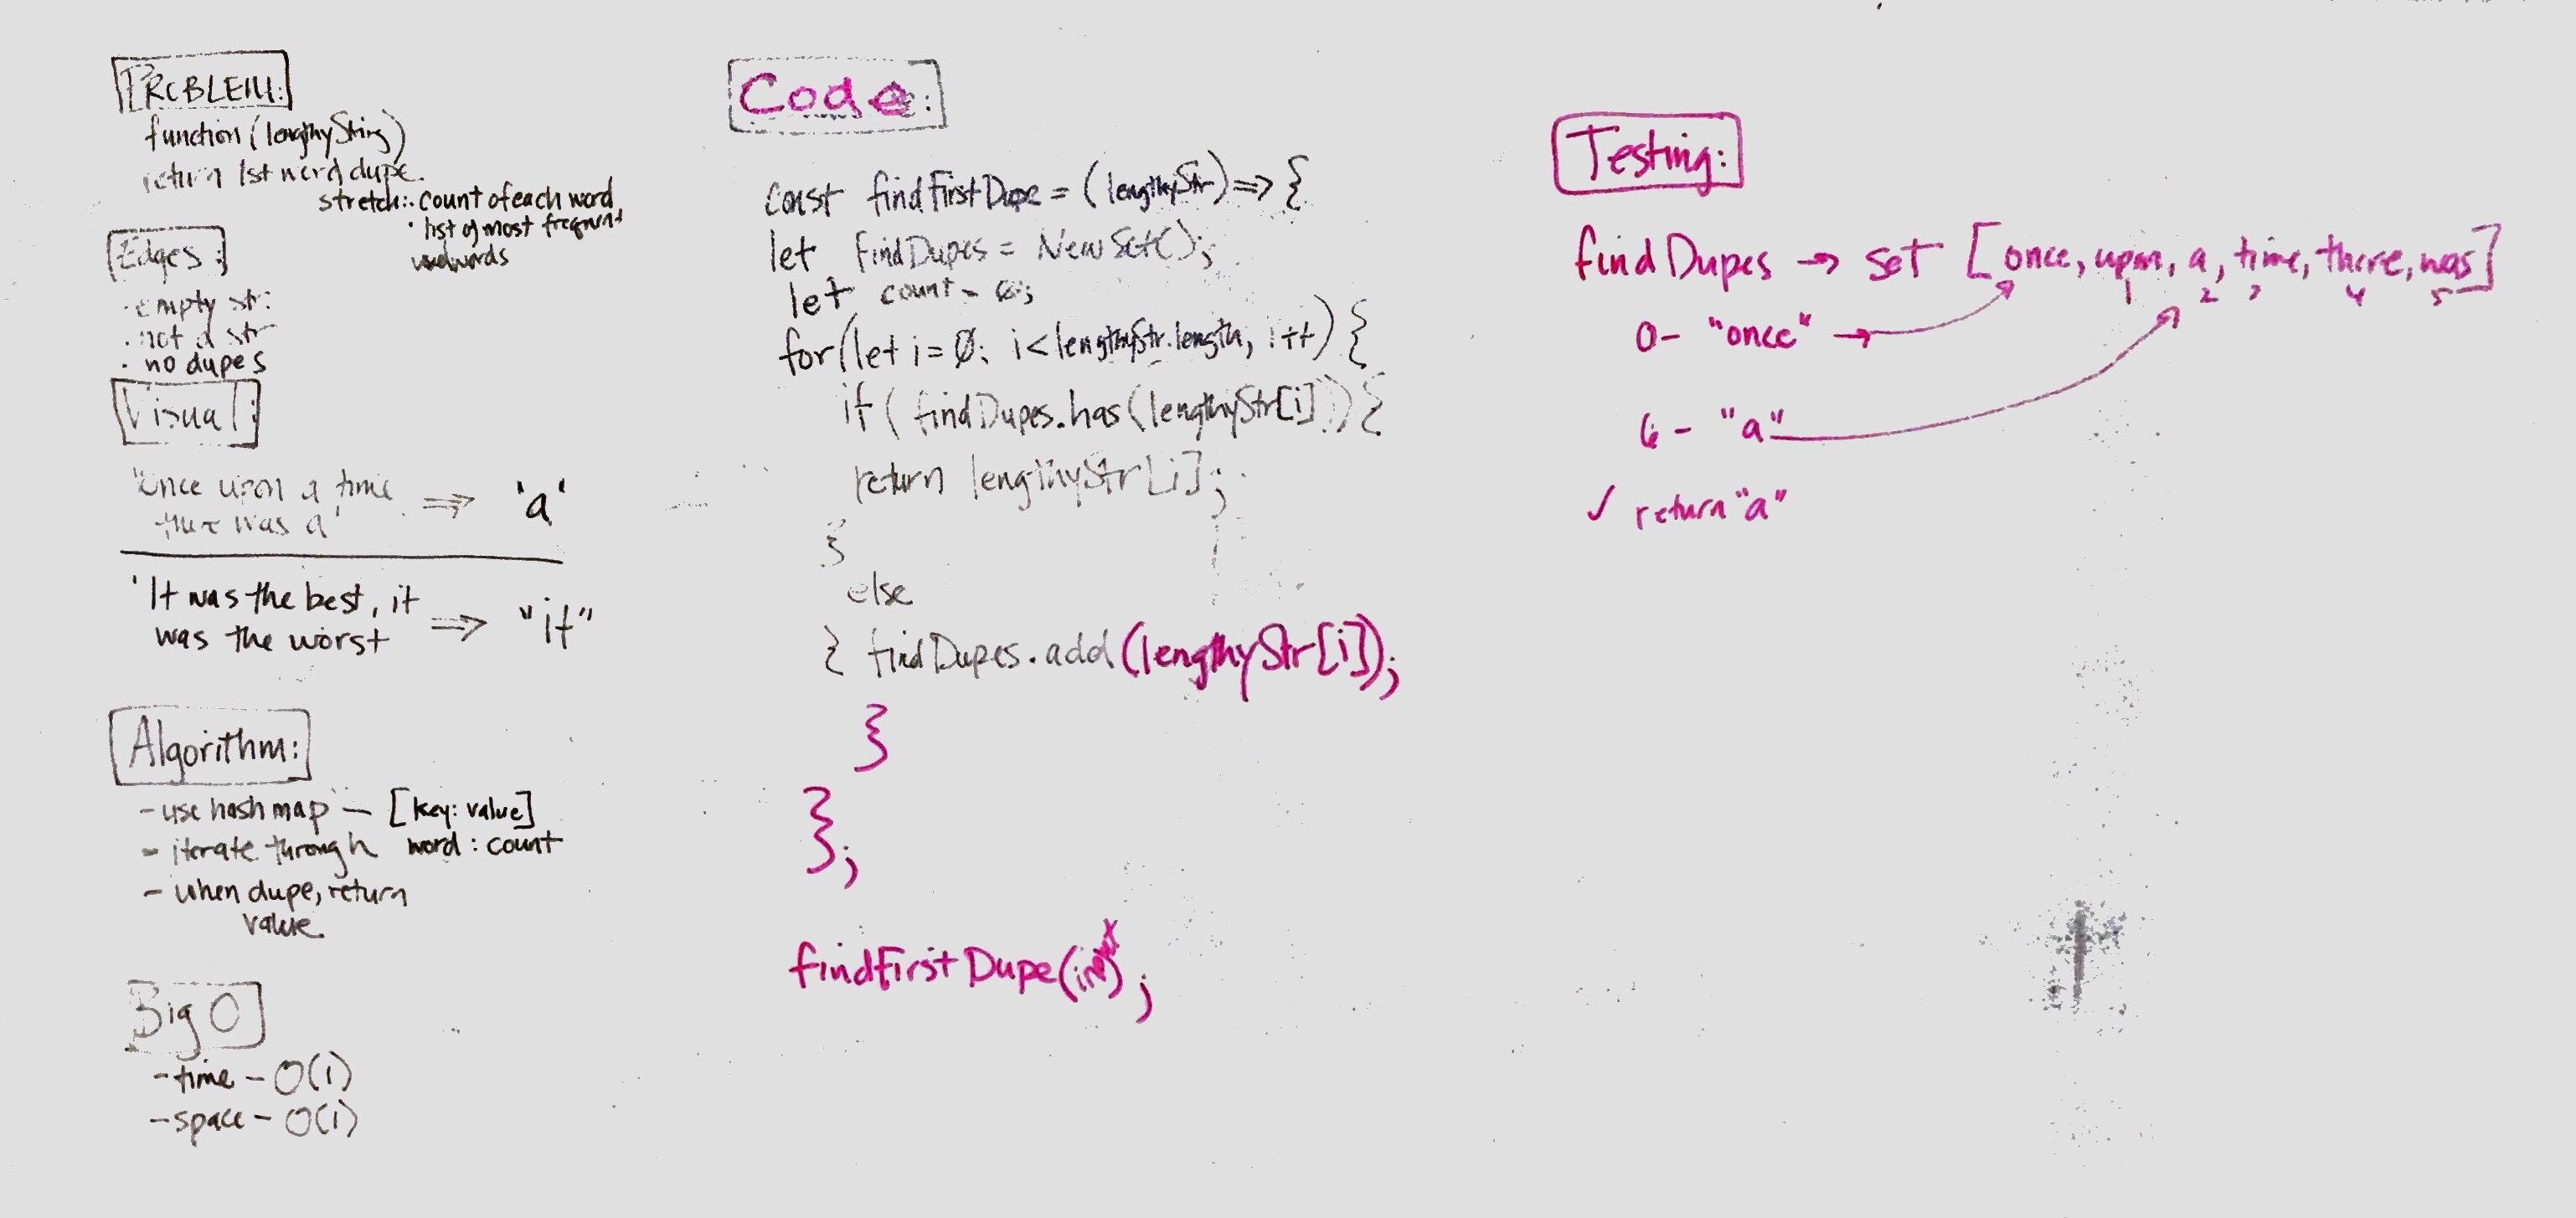 PROBLEM:
function (lengthyString)
return 1st word dupe.
stretch: · count of each word
· list of most frequent
used words
Edges:
· empty str
· not a str
· no dupes
Visual:
"Once upon a time
there was a" ⇒ 'a'
'It was the best, it
was the worst ⇒ "it"
Algorithm:
- use hash map — [key: value]
- iterate through word : count
- when dupe, return
value.
Big O
- time - O(1)
- space - O(1)
Code:
const findFirstDupe = (lengthyStr) => {
let findDupes = New Set();
let count = 0;
for(let i = 0; i < lengthyStr.length, i++) {
if ( findDupes.has(lengthyStr[i])) {
return lengthyStr[i];
}
else
{ findDupes.add(lengthyStr[i]);
}
};
findFirstDupe( );
Testing:
findDupes → set [once, upon, a, time, there, was]
1 2 3 4 5
0 - "once" →
6 - "a"
✓ return "a"